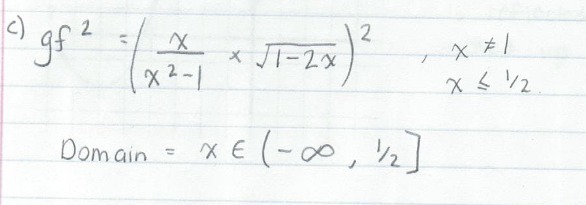 c) gf² = (x/(x²-1) × √(1-2x))² , x ≠ 1
x ≤ 1/2.
Domain = x ∈ (-∞, 1/2]